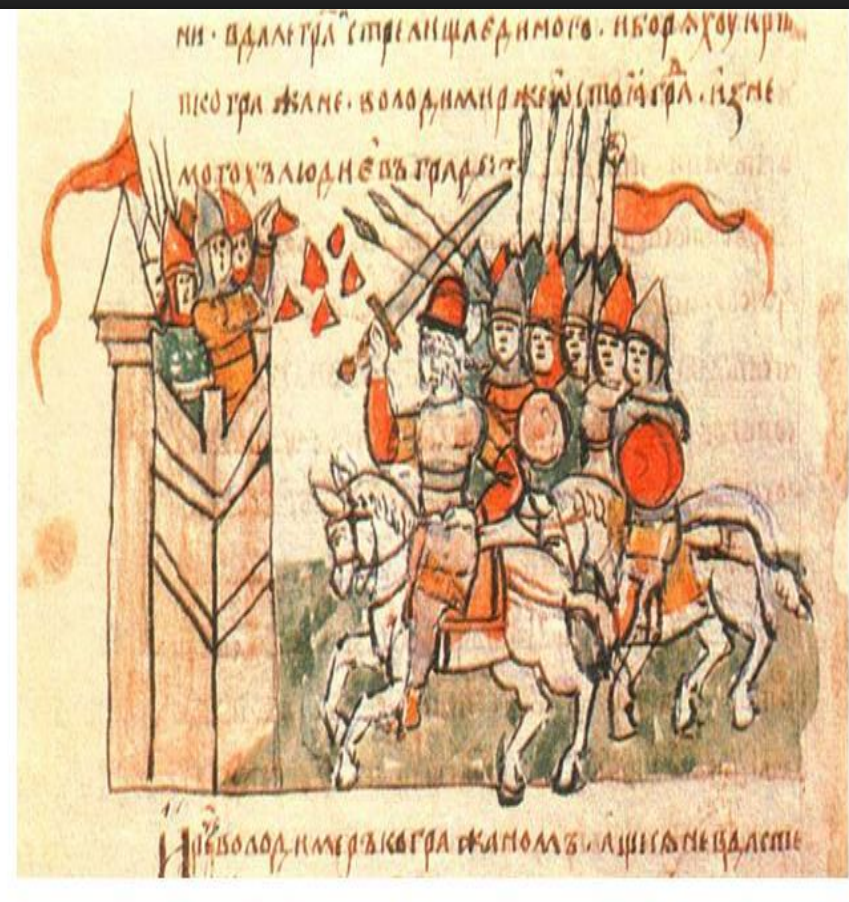 ни · вдале гра͗ стрелища единого · и борѧхоу крѣ
пко гра жане · володимир же ѡстоꙗ граⷣ · изне
могохъ людие въ граⷣ
И реⷱ володимеръ ко гра жаномъ · аще сѧ не вдасте